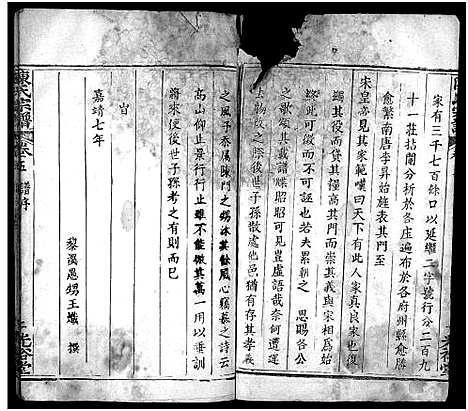 家有三千七百餘口以延繼二字號行分二百九
十一莊拈鬮分析於各庄遍布於各府州縣愈勝
愈繁南唐李昇旌表其門至
宋皇帝見其家範嘆曰天下有此人家真良家也復
蠲其役而貸其糧高其門而崇其義與宋相為始
終不可得而不可誣也若夫累朝 恩賜各公
之歌頌其載譜牒昭昭可見豈虛語哉奈何遭運
物故之際後世子孫散處他邑猶有存其孝義
之風予忝屬陳門之甥沐其餘風心竊慕之詩云
高山仰止景行行止雖不能微其萬一用以垂訓
將來俾後世子孫考之有則而已
旹
嘉靖七年
黎溪愚甥王熾 撰
陳氏宗譜
卷五 譜序